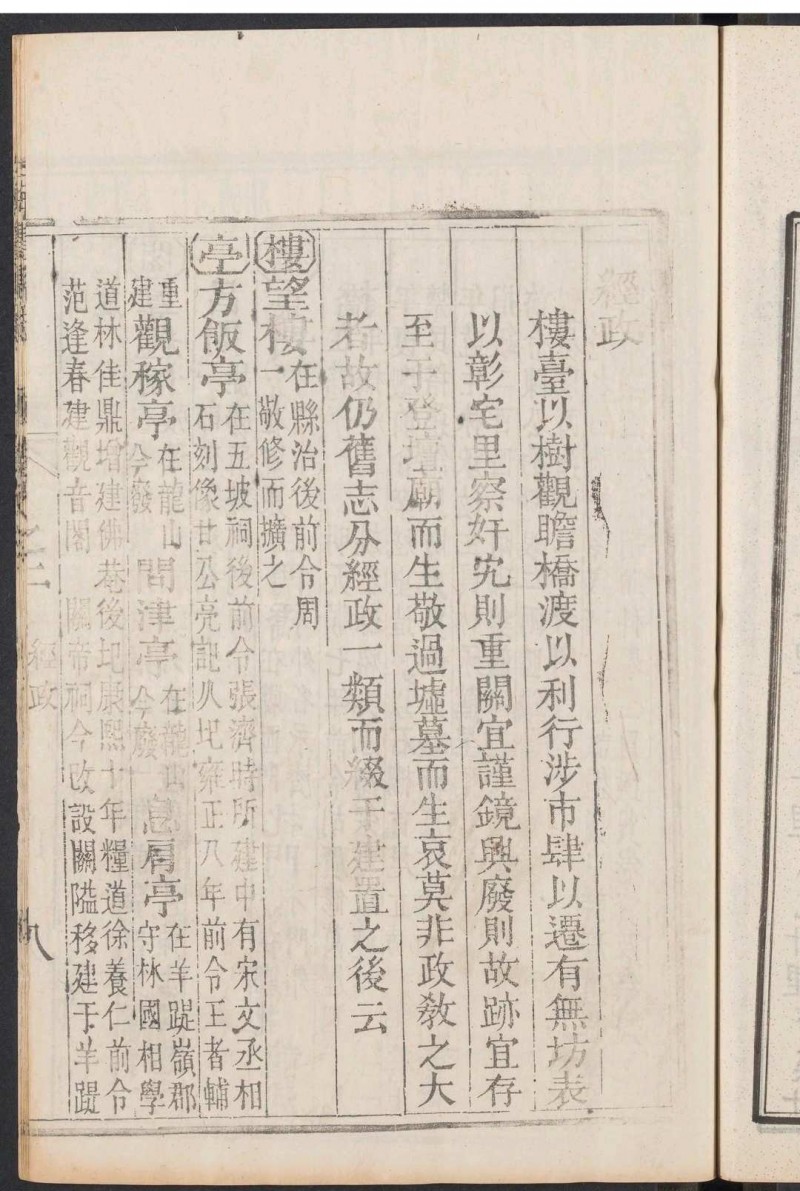 經政
樓臺以樹觀瞻橋渡以利行涉市肆以遷有無坊表
以彰宅里察奸宄則重關宜謹鏡興廢則故跡宜存
至于登壇廟而生敬過墟墓而生哀莫非政敎之大
者故仍舊志分經政一類而綴于建置之後云
樓望樓在縣治後前令周
一敬修而擴之
亭方飯亭在五坡祠後前令張濟時所建中有宋文丞相
石刻像甘公亮記久圯雍正八年前令王者輔
重
建觀稼亭在龍山
今廢問津亭在龍山
今廢息肩亭在羊蹝嶺郡
守林國相學
道林佳鼎增建佛巷後圯康熙十年糧道徐養仁前令
范逢春建觀音閣 關帝祠今改設關隘移建于羊蹝
經政
八